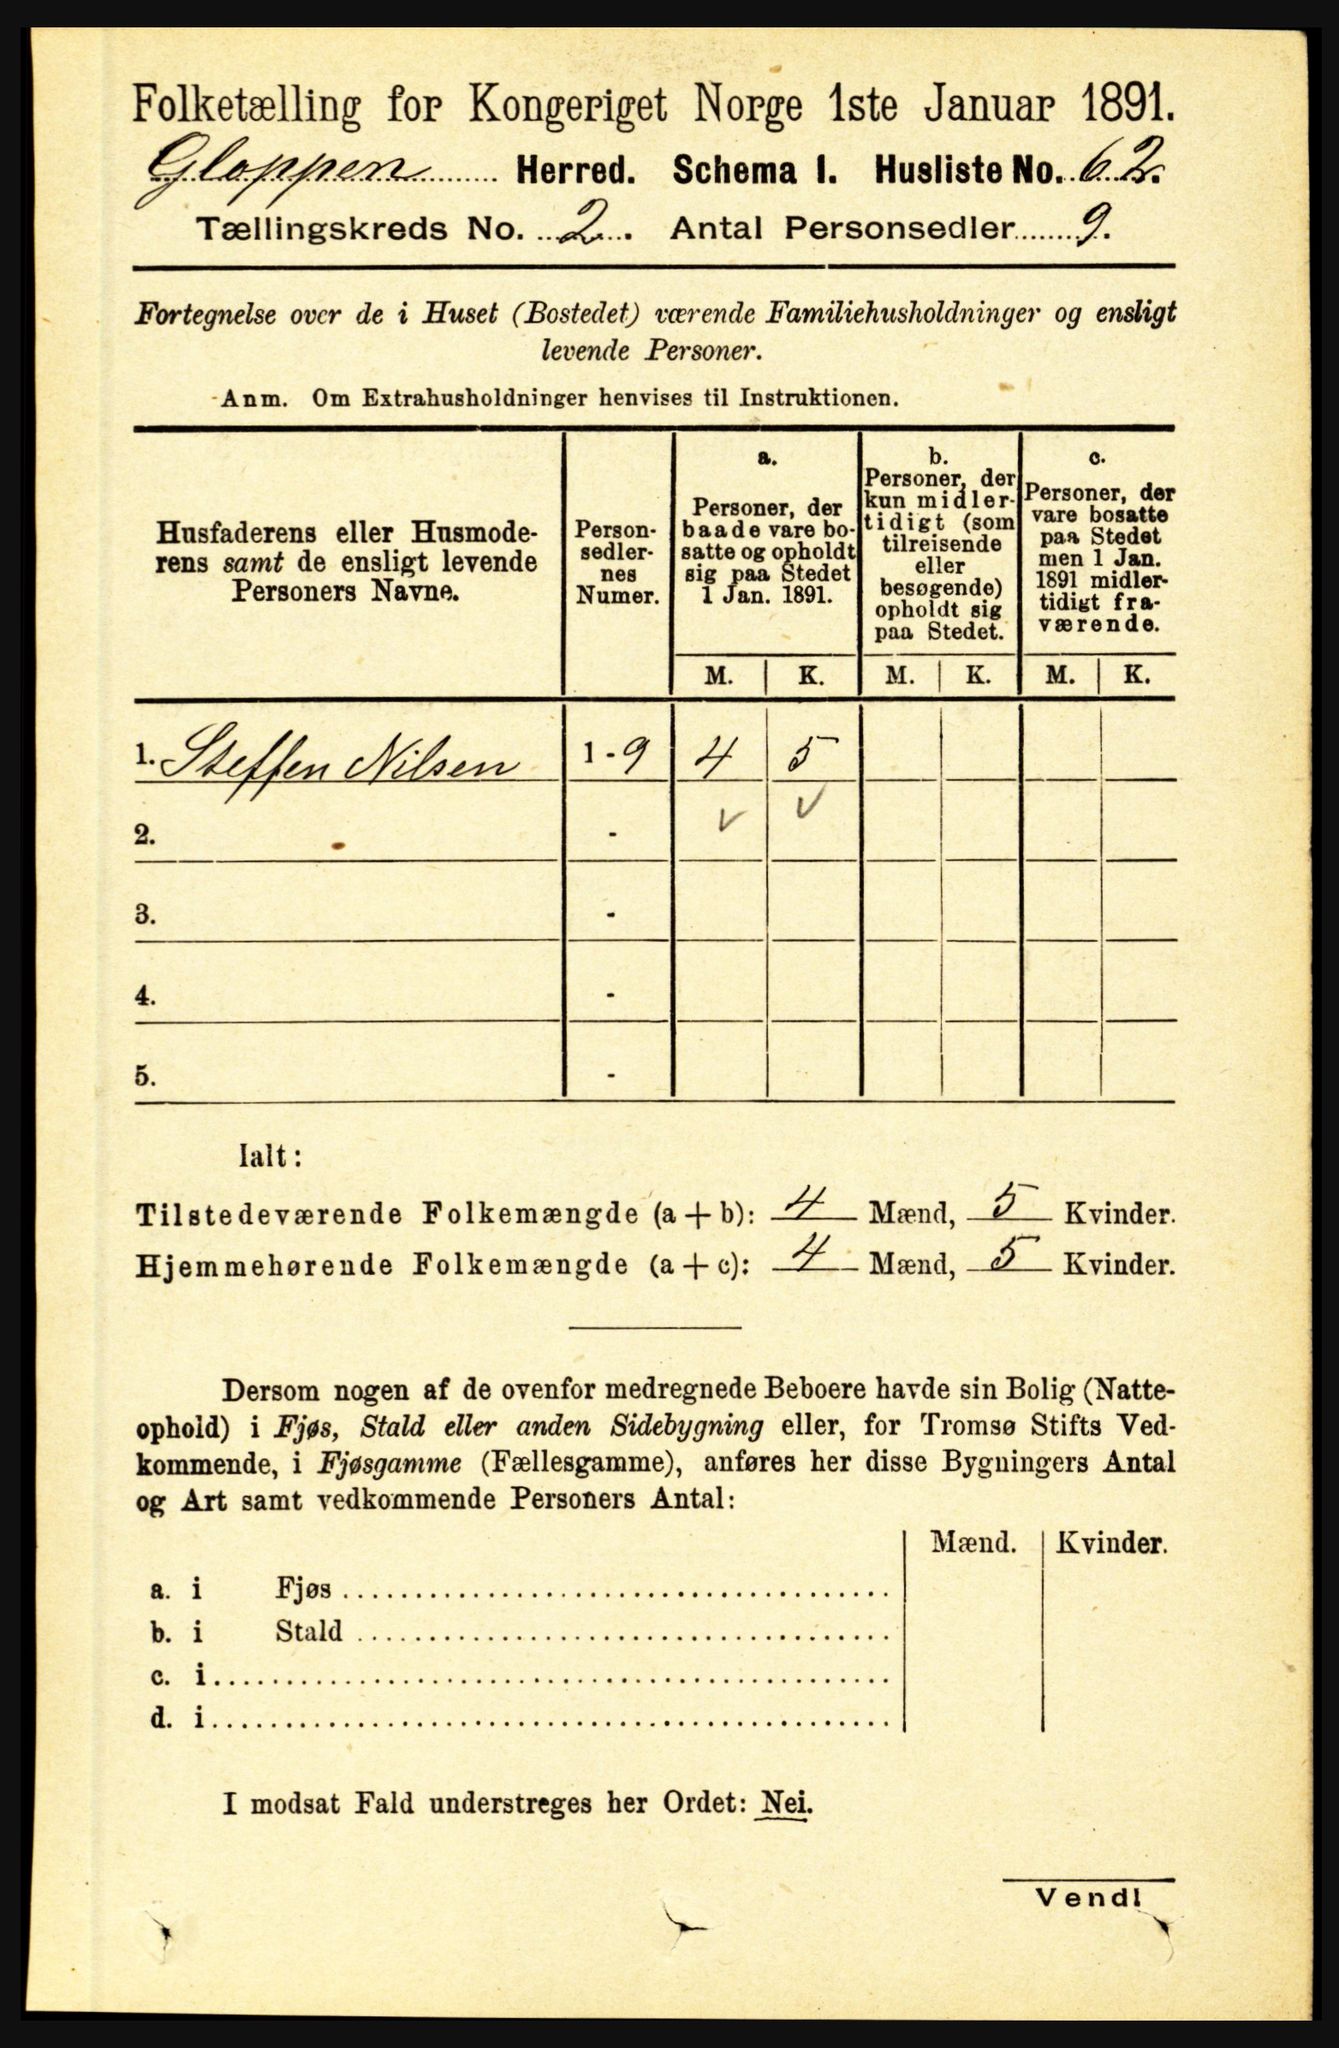 Folketælling for Kongeriget Norge 1ste Januar 1891.
Gloppen Herred. Schema I. Husliste No. 62.
Tællingskreds No. 2. Antal Personsedler 9.
Fortegnelse over de i Huset (Bostedet) værende Familiehusholdninger og ensligt
levende Personer.
Anm. Om Extrahusholdninger henvises til Instruktionen.
Husfaderens eller Husmode-
rens samt de ensligt levende
Personers Navne.
Person-
sedler-
nes
Numer.
a.
Personer, der
baade vare bo-
satte og opholdt
sig paa Stedet
1 Jan. 1891.
b.
Personer, der
kun midler-
tidigt (som
tilreisende
eller
besøgende)
opholdt sig
paa Stedet.
c.
Personer, der
vare bosatte
paa Stedet
men 1 Jan.
1891 midler-
tidigt fra-
værende.
M. K. M. K. M. K.
1. Steffen Nilsen 1-9 4 5
2. -
3. -
4. -
5. -
Ialt:
Tilstedeværende Folkemængde (a+b): 4 Mænd, 5 Kvinder.
Hjemmehørende Folkemængde (a+c): 4 Mænd, 5 Kvinder.
Dersom nogen af de ovenfor medregnede Beboere havde sin Bolig (Natte-
ophold) i Fjøs, Stald eller anden Sidebygning eller, for Tromsø Stifts Ved-
kommende, i Fjøsgamme (Fællesgamme), anføres her disse Bygningers Antal
og Art samt vedkommende Personers Antal:
Mænd. Kvinder.
a. i Fjøs
b. i Stald
c. i
d. i
I modsat Fald understreges her Ordet: Nei.
Vend!